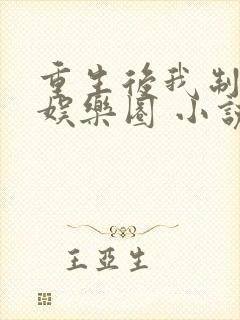 重生後我制
娛樂圈 小說
王亞生